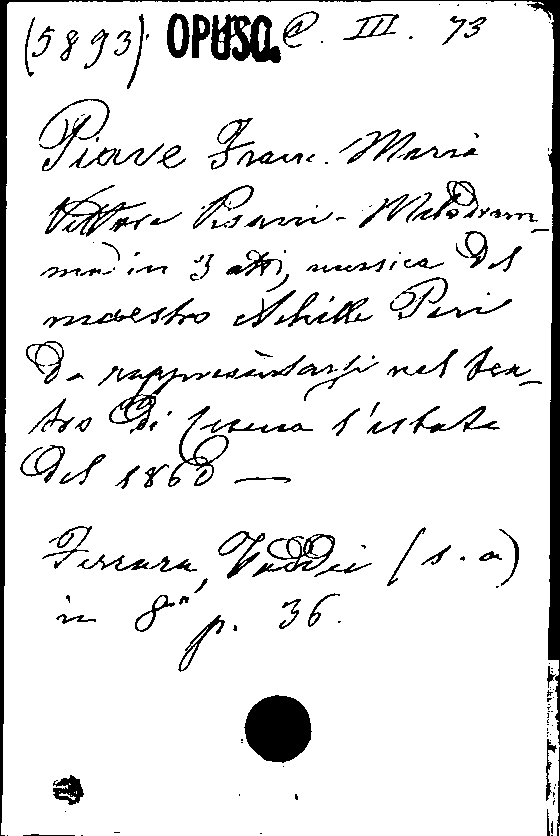 (5893) OPUSC. C. III. 73
Piave Franc. Maria
Vittore Pisani - Melodram-
ma in 3 atti, musica del
maestro Achille Peri
da rappresentarsi nel tea-
tro di Cesena l'estate
del 1860 —
Ferrara, Taddei (s. a)
in 8° p. 36.